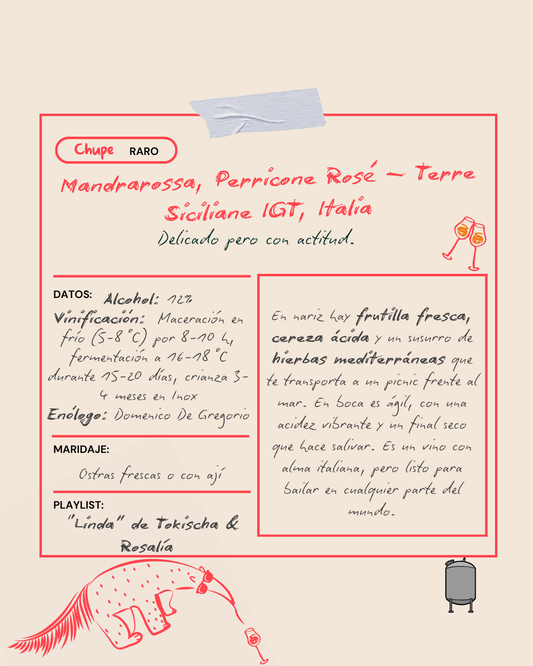 Chupe RARO
Mandrarossa, Perricone Rosé – Terre
Siciliane IGT, Italia
Delicado pero con actitud.
DATOS: Alcohol: 12%
Vinificación: Maceración en
frío (5-8 °C) por 8-10 h,
fermentación a 16-18 °C
durante 15-20 días, crianza 3-
4 meses en Inox
Enólogo: Domenico De Gregorio
MARIDAJE:
Ostras frescas o con ají
PLAYLIST:
"Linda" de Tokischa &
Rosalía
En nariz hay frutilla fresca,
cereza ácida y un susurro de
hierbas mediterráneas que
te transporta a un picnic frente al
mar. En boca es ágil, con una
acidez vibrante y un final seco
que hace salivar. Es un vino con
alma italiana, pero listo para
bailar en cualquier parte del
mundo.